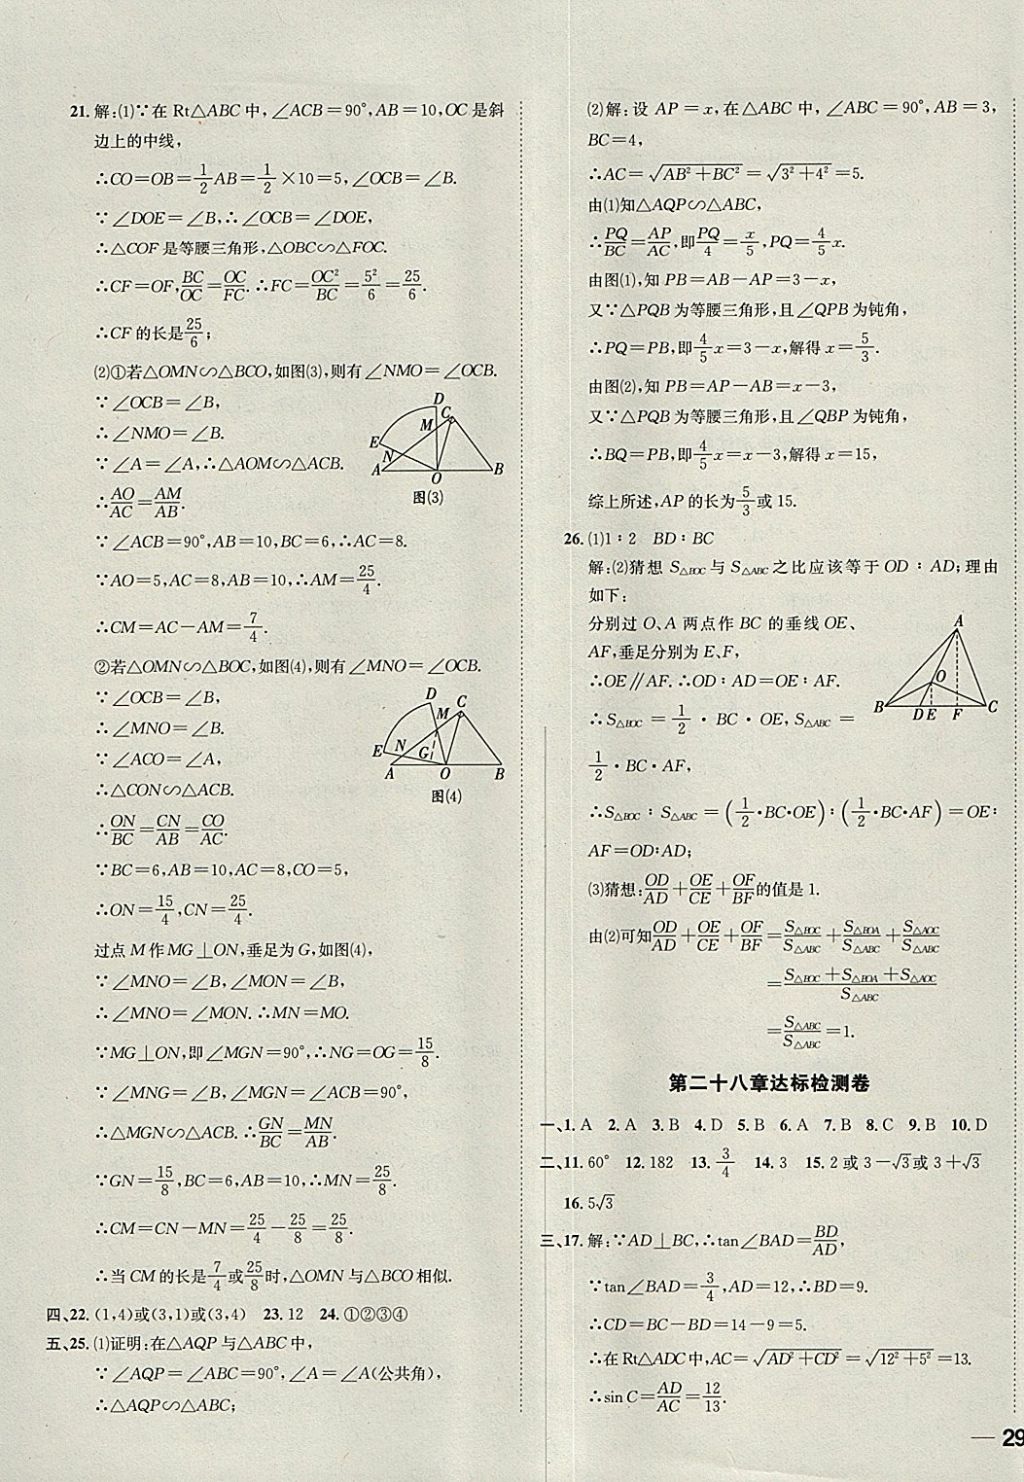 21. 解:(1)∵在 Rt△ABC 中,∠ACB=90°,AB=10,OC 是斜
边上的中线,
∴CO=OB=1/2 AB=1/2×10=5,∠OCB=∠B.
∵∠DOE=∠B,∴∠OCB=∠DOE,
∴△COF 是等腰三角形,△OBC∽△FOC.
∴CF=OF,BC/OC=OC/FC.∴FC=OC²/BC=5²/6=25/6.
∴CF 的长是25/6;
(2)①若△OMN∽△BCO,如图(3),则有∠NMO=∠OCB.
∵∠OCB=∠B,
∴∠NMO=∠B.
∵∠A=∠A,∴△AOM∽△ACB.
∴AO/AC=AM/AB.
D
C
M
E
N
A
O
B
图(3)
∵∠ACB=90°,AB=10,BC=6,∴AC=8.
∵AO=5,AC=8,AB=10,∴AM=25/4.
∴CM=AC-AM=7/4.
②若△OMN∽△BOC,如图(4),则有∠MNO=∠OCB.
∵∠OCB=∠B,
∴∠MNO=∠B.
∵∠ACO=∠A,
∴△CON∽△ACB.
D
C
M
E
N
G
A
O
B
图(4)
∴ON/BC=CN/AB=CO/AC.
∵BC=6,AB=10,AC=8,CO=5,
∴ON=15/4,CN=25/4.
过点 M 作 MG⊥ON,垂足为 G,如图(4),
∵∠MNO=∠B,∠MON=∠B,
∴∠MNO=∠MON.∴MN=MO.
∵MG⊥ON,即∠MGN=90°,∴NG=OG=15/8.
∵∠MNG=∠B,∠MGN=∠ACB=90°,
∴△MGN∽△ACB.∴GN/BC=MN/AB.
∵GN=15/8,BC=6,AB=10,∴MN=25/8.
∴CM=CN-MN=25/4-25/8=25/8.
∴当 CM 的长是7/4或25/8时,△OMN 与△BCO 相似.
四、22. (1,4)或(3,1)或(3,4) 23. 12 24. ①②③④
五、25. (1)证明:在△AQP 与△ABC 中,
∵∠AQP=∠ABC=90°,∠A=∠A(公共角),
∴△AQP∽△ABC;
(2)解:设 AP=x,在△ABC 中,∠ABC=90°,AB=3,
BC=4,
∴AC=√(AB²+BC²)=√(3²+4²)=5.
由(1)知△AQP∽△ABC,
∴PQ/BC=AP/AC,即PQ/4=x/5,PQ=4/5 x.
由图(1),知 PB=AB-AP=3-x,
又∵△PQB 为等腰三角形,且∠QPB 为钝角,
∴PQ=PB,即4/5 x=3-x,解得 x=5/3.
由图(2),知 PB=AP-AB=x-3,
又∵△PQB 为等腰三角形,且∠QBP 为钝角,
∴BQ=PB,即4/5 x=x-3,解得 x=15,
综上所述,AP 的长为5/3或15.
26. (1)1∶2 BD∶BC
解:(2)猜想 S△BOC 与 S△ABC 之比应该等于 OD∶AD;理由
如下:
分别过 O、A 两点作 BC 的垂线 OE、
AF,垂足分别为 E、F,
∴OE∥AF.∴OD∶AD=OE∶AF.
∴S△BOC=1/2·BC·OE,S△ABC=
1/2·BC·AF,
A
O
B
D
E
F
C
∴S△BOC∶S△ABC=(1/2·BC·OE)∶(1/2·BC·AF)=OE∶
AF=OD∶AD;
(3)猜想:OD/AD+OE/CE+OF/BF的值是 1.
由(2)可知OD/AD+OE/CE+OF/BF=S△BOC/S△ABC+S△BOA/S△ABC+S△AOC/S△ABC
=(S△BOC+S△BOA+S△AOC)/S△ABC
=S△ABC/S△ABC=1.
第二十八章达标检测卷
一、1. A 2. A 3. B 4. D 5. B 6. A 7. B 8. C 9. B 10. D
二、11. 60° 12. 182 13. 3/4 14. 3 15. 2 或 3-√3或 3+√3
16. 5√3
三、17. 解:∵AD⊥BC,∴tan∠BAD=BD/AD,
∵tan∠BAD=3/4,AD=12,∴BD=9.
∴CD=BC-BD=14-9=5.
∴在 Rt△ADC 中,AC=√(AD²+CD²)=√(12²+5²)=13.
∴sin C=AD/AC=12/13.
— 29